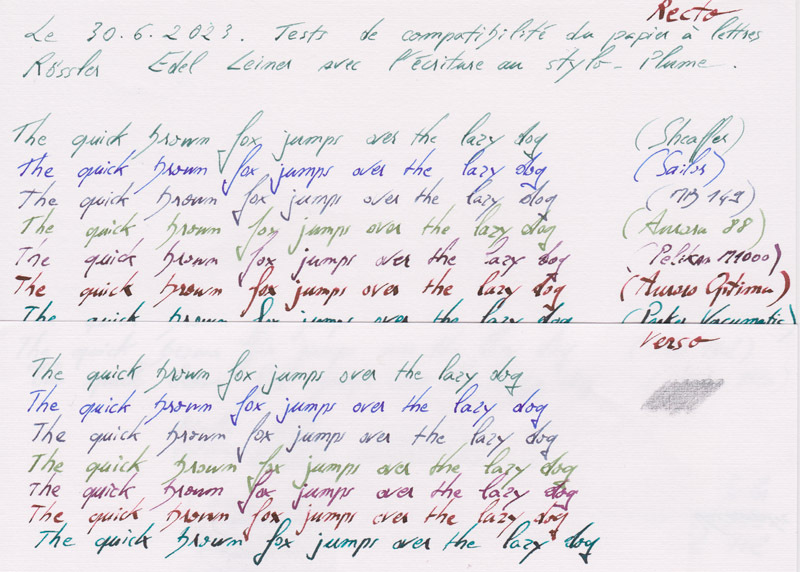 Recto
Le 30.6.2023. Tests de compatibilité du papier à lettres
Rössler Edel Leinen avec l'écriture au stylo-Plume.
The quick brown fox jumps over the lazy dog (Sheaffer)
The quick brown fox jumps over the lazy dog (Sailor)
The quick brown fox jumps over the lazy dog (MB 149)
The quick brown fox jumps over the lazy dog (Aurora 88)
The quick brown fox jumps over the lazy dog (Pelikan M1000)
The quick brown fox jumps over the lazy dog (Aurora Optima)
The quick brown fox jumps over the lazy dog (Parker Vacumatic)
Verso
The quick brown fox jumps over the lazy dog
The quick brown fox jumps over the lazy dog
The quick brown fox jumps over the lazy dog
The quick brown fox jumps over the lazy dog
The quick brown fox jumps over the lazy dog
The quick brown fox jumps over the lazy dog
The quick brown fox jumps over the lazy dog